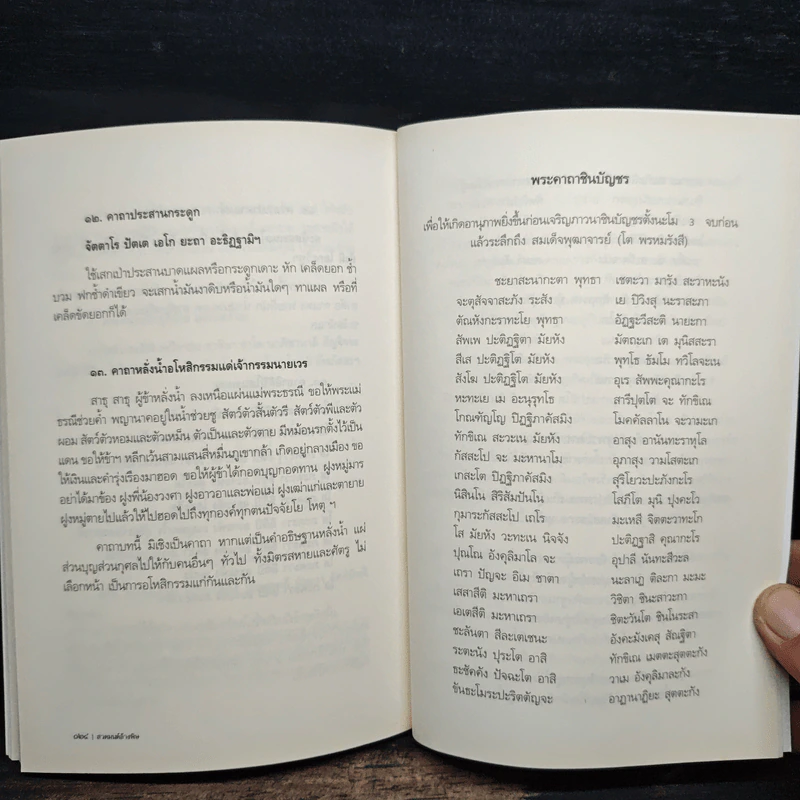 ๑๒. คาถาประสานกระดูก
จัตตาโร ปัตเต เอโก ยะถา อะธิฏฐามิฯ
ใช้เสกเป่าประสานบาดแผลหรือกระดูกเดาะ หัก เคล็ดยอก ช้ำ
บวม ฟกช้ำดำเขียว จะเสกน้ำมันงาดิบหรือน้ำมันใดๆ ทาแผล หรือที่
เคล็ดขัดยอกก็ได้
๑๓. คาถาหลั่งน้ำอโหสิกรรมแด่เจ้ากรรมนายเวร
สาธุ สาธุ ผู้ข้าหลั่งน้ำ ลงเหนือแผ่นแม่พระธรณี ขอให้พระแม่
ธรณีช่วยค้ำ พญานาคอยู่ในน้ำช่วยชู สัตว์ตัวสั้นตัวรี สัตว์ตัวพีและตัว
ผอม สัตว์ตัวหอมและตัวเหม็น ตัวเป็นและตัวตาย มีหม้อนรกตั้งไว้เป็น
แดน ขอให้ข้าฯ หลีกเว้นสามแสนสี่หมื่นภูเขากล้า เกิดอยู่กลางเมือง ขอ
ให้เงินและคำรุ่งเรืองมาฮอด ขอให้ผู้ข้าได้กอดบุญกอดทาน ฝูงหมู่มาร
อย่าได้มาข้อง ฝูงพี่น้องวงศา ฝูงอาวอาและพ่อแม่ ฝูงเฒ่าแก่และตายาย
ฝูงหมู่ตายไปแล้วให้ไปฮอดไปถึงทุกองค์ทุกตนปัจจัยโย โหตุ ฯ
คาถาบทนี้ มิเชิงเป็นคาถา หากแต่เป็นคำอธิษฐานหลั่งน้ำ แผ่
ส่วนบุญส่วนกุศลไปให้กับคนอื่นๆ ทั่วไป ทั้งมิตรสหายและศัตรู ไม่
เลือกหน้า เป็นการอโหสิกรรมแก่กันและกัน
๑๒๘ | สวดมนต์ล้างพิษ
พระคาถาชินบัญชร
เพื่อให้เกิดอานุภาพยิ่งขึ้นก่อนเจริญภาวนาชินบัญชรตั้งนะโม 3 จบก่อน
แล้วระลึกถึง สมเด็จพุฒาจารย์ (โต พรหมรังสี)
ชะยาสะนากะตา พุทธา เชตะวา มารัง สะวาหะนัง
จะตุสัจจาสะภัง ระสัง เย ปิวิงสุ นะราสะภา
ตัณหังกะราทะโย พุทธา อัฏฐะวีสะติ นายะกา
สัพเพ ปะติฏฐิตา มัยหัง มัตถะเก เต มุนิสสะรา
สีเส ปะติฏฐิโต มัยหัง พุทโธ ธัมโม ทวิโลจะเน
สังโฆ ปะติฏฐิโต มัยหัง อุเร สัพพะคุณากะโร
หะทะเย เม อะนุรุทโธ สารีปุตโต จะ ทักขิเณ
โกณฑัญโญ ปิฏฐิภาคัสมิง โมคคัลลาโน จะวามะเก
ทักขิเณ สะวะเน มัยหัง อาสุง อานันทะราหุโล
กัสสะโป จะ มะหานาโม อุภาสุง วามโสตะเก
เกสะโต ปิฏฐิภาคัสมิง สุริโยวะปะภังกะโร
นิสินโน สิริสัมปันโน โสภีโต มุนี ปุงคะโว
กุมาระกัสสะโป เถโร มะเหสี จิตตะวาทะโก
โส มัยหัง วะทะเน นิจจัง ปะติฏฐาสิ คุณากะโร
ปุณโณ อังคุลิมาโล จะ อุปาลี นันทะสีวะล
เถรา ปัญจะ อิเม ชาตา นะลาเฏ ติละกา มะมะ
เสสาสีติ มะหาเถรา วิชิตา ชินะสาวะกา
เอเตสีติ มะหาเถรา ชิตะวันโต ชินโนระสา
ชะลันตา สีละเตเชนะ อังคะมังเคสุ สัณฐิตา
ระตะนัง ปุระโต อาสิ ทักขิเณ เมตตะสุตตะกัง
ธะชัคคัง ปัจฉะโต อาสิ วาเม อังคุลิมาละกัง
ขันธะโมระปะริตตัญจะ อาฏานาฏิยะ สุตตะกัง